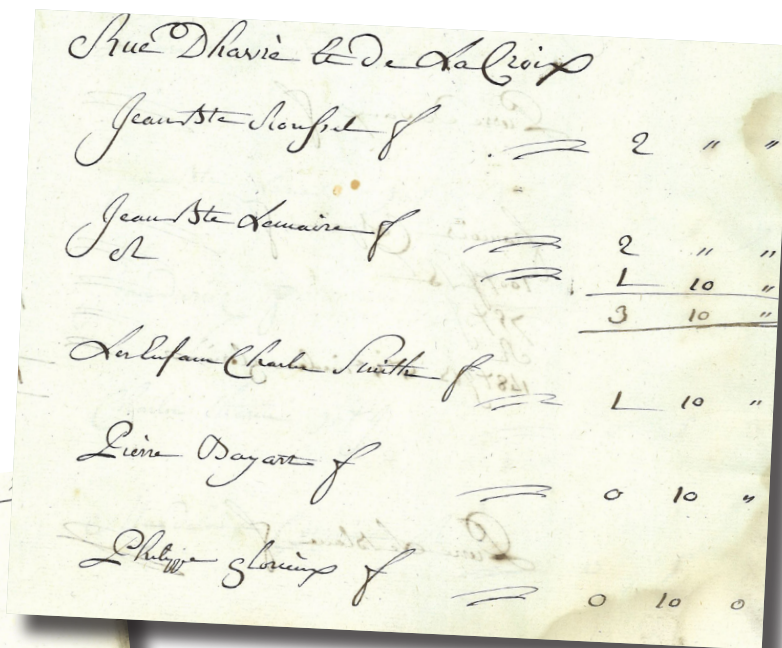 Rue Dhavrè et De La Croix
Jean Bte Roussel f 2 " "
Jean Bte Lemaire f 2 " "
R 1 10 "
3 10 "
Les Enfans Charles Smith f 1 10 "
Pierre Bayart f 0 10 "
Philippe glorieux f 0 10 0